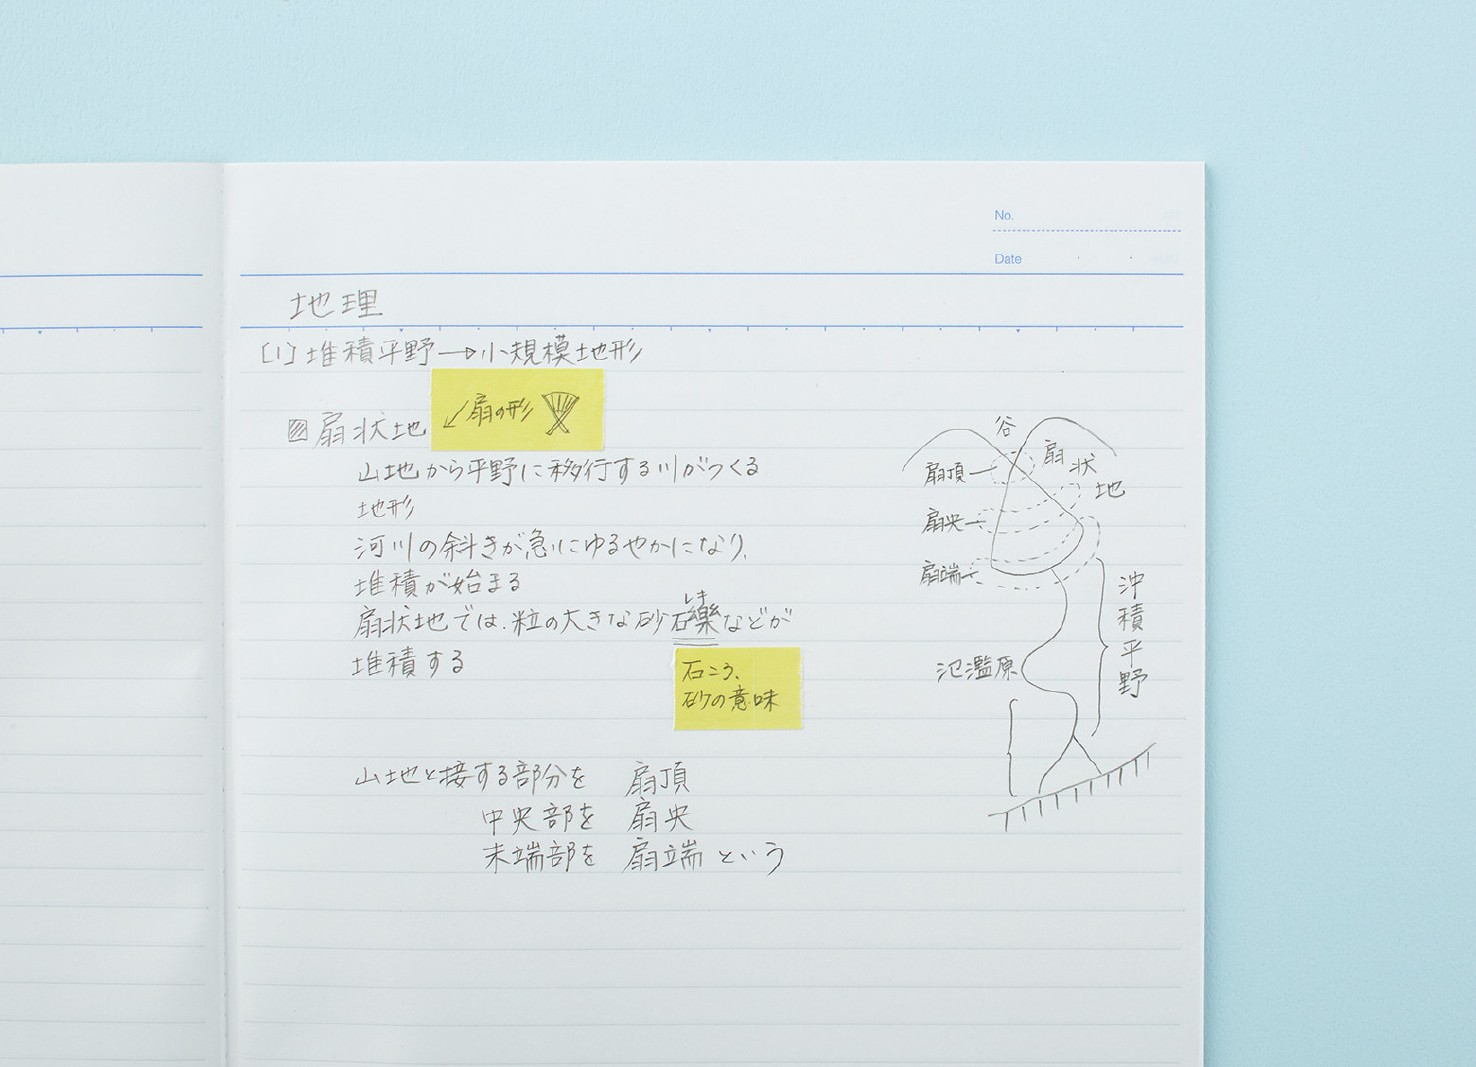 No.
Date
地理
[1] 堆積平野→小規模地形
扇状地
↙扇の形
山地から平野に移行する川がつくる
地形
河川の斜きが急にゆるやかになり、
堆積が始まる
れき
扇状地では、粒の大きな砂礫などが
堆積する
石ころ、
砂の意味
山地と接する部分を 扇頂
中央部を 扇央
末端部を 扇端 という
谷
扇状地
扇頂
扇央
扇端
氾濫原
沖積平野